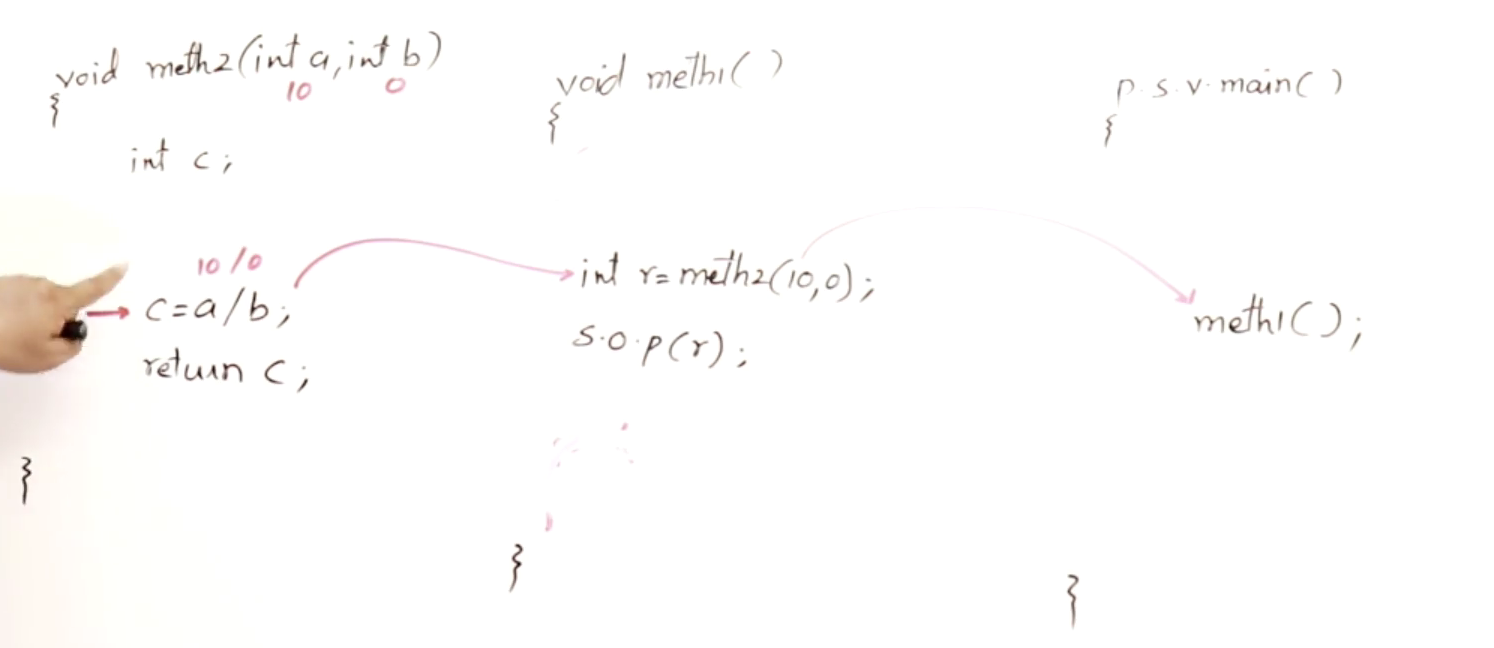 void meth2(int a,int b)
10 0
{
int c;
10/0
c=a/b;
return c;
}
void meth1()
{
int r=meth2(10,0);
S.O.P(r);
}
P.S.V.main()
{
meth1();
}